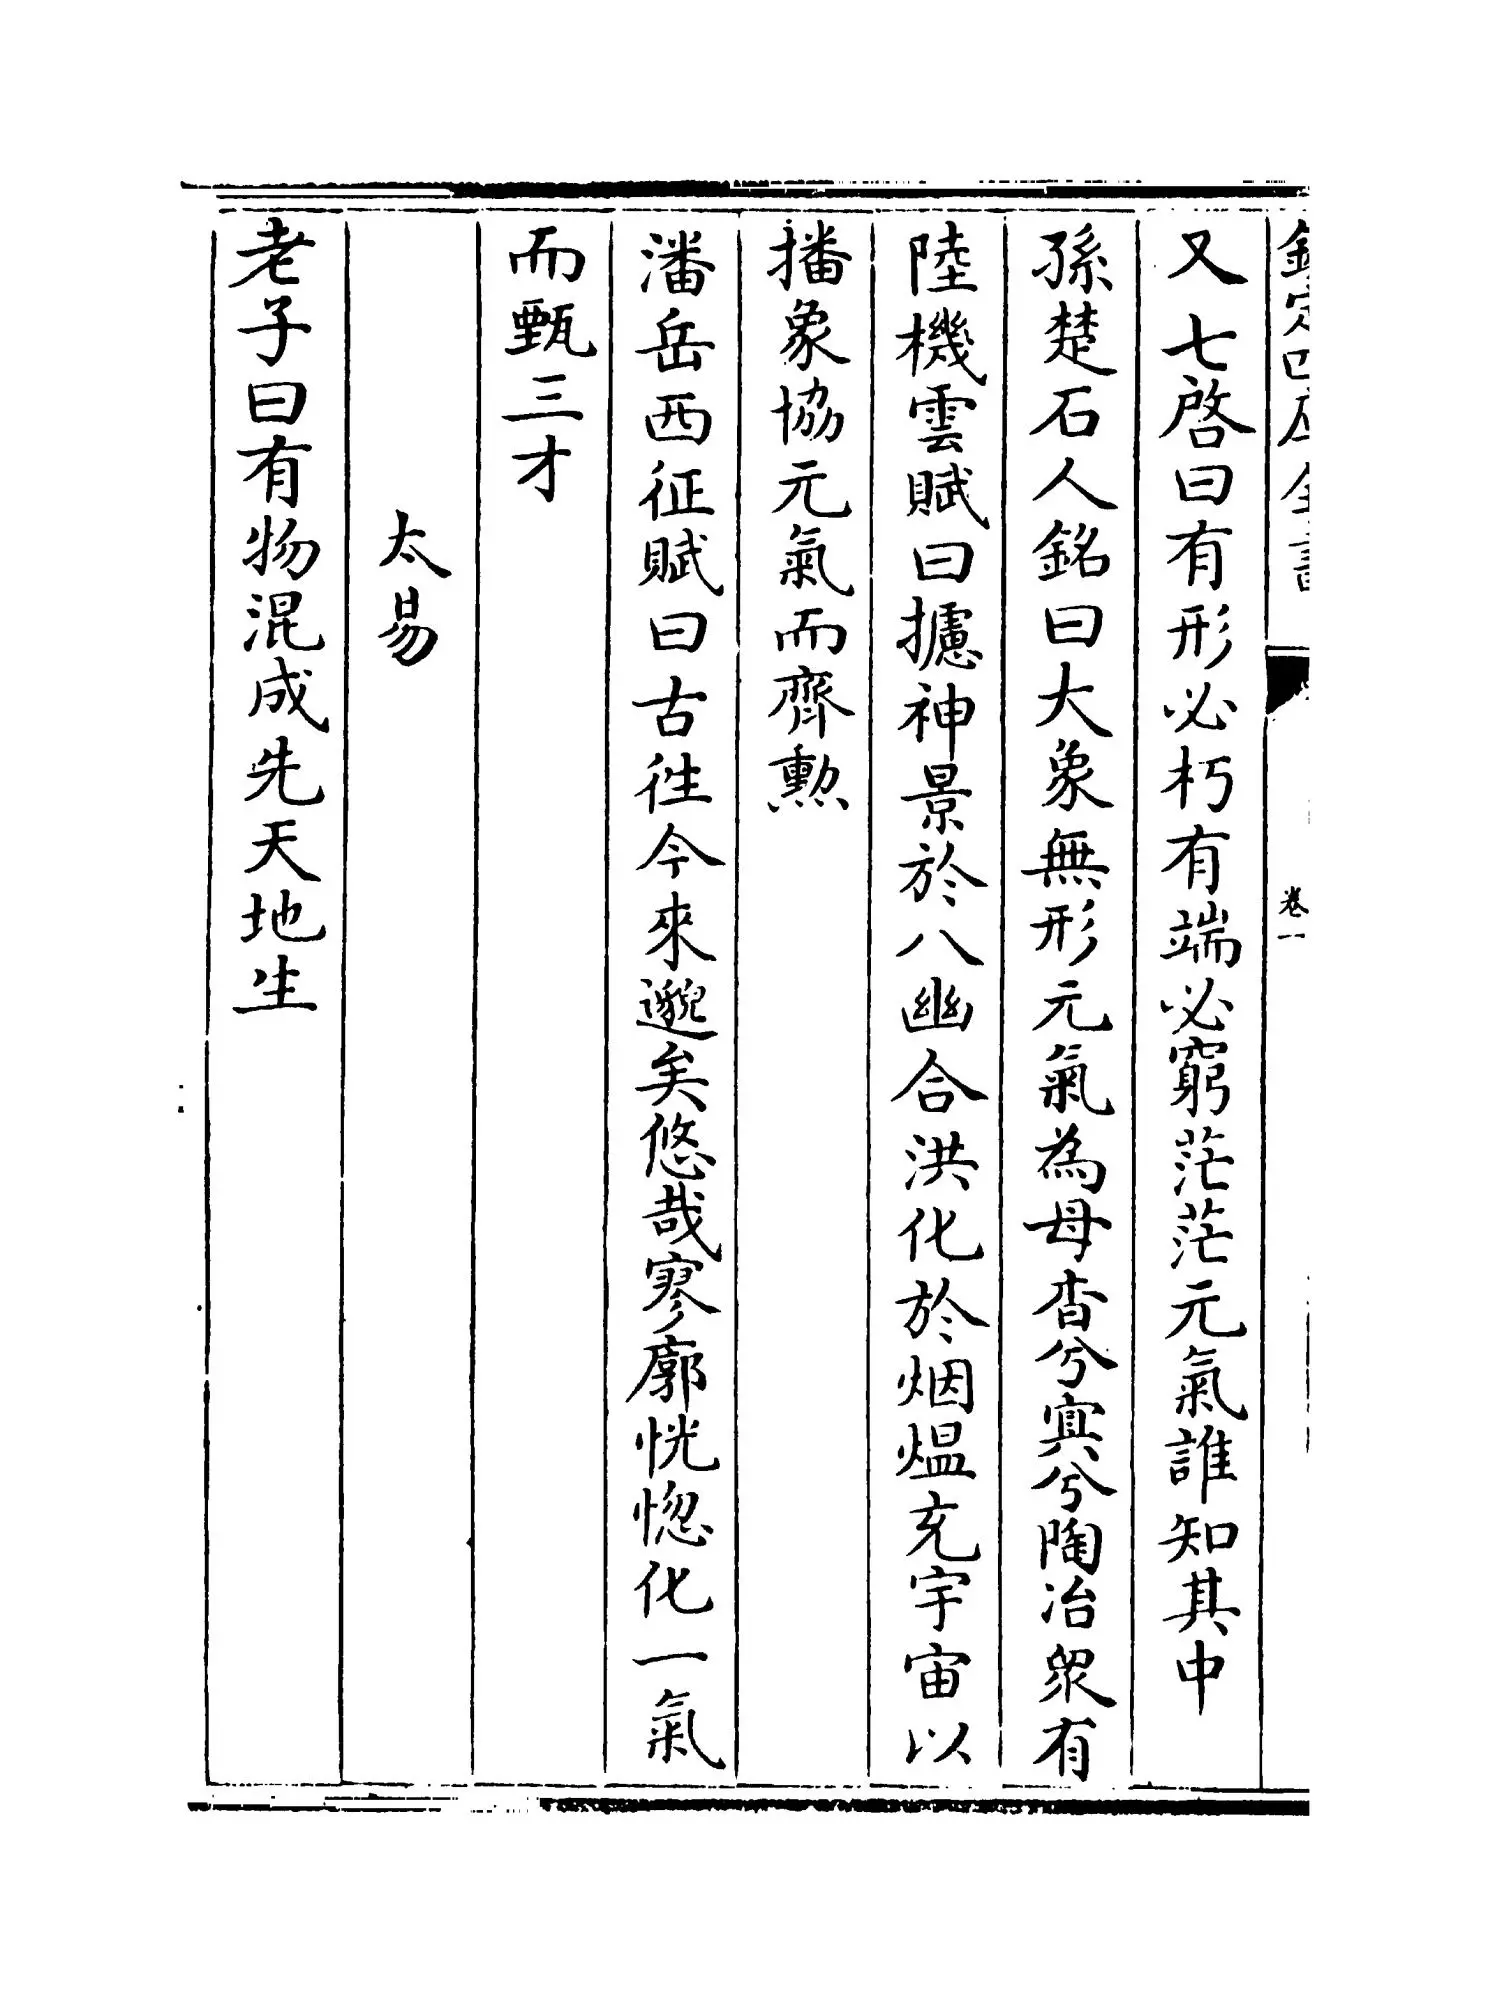 欽定四庫全書
卷一
又七啓曰有形必朽有端必窮茫茫元氣誰知其中
孫楚石人銘曰大象無形元氣為母杳兮冥兮陶冶衆有
陸機雲賦曰攄神景於八幽合洪化於烟熅充宇宙以
播象協元氣而齊勲
潘岳西征賦曰古徃今來邈矣悠哉寥廓恍惚化一氣
而甄三才
太易
老子曰有物混成先天地生